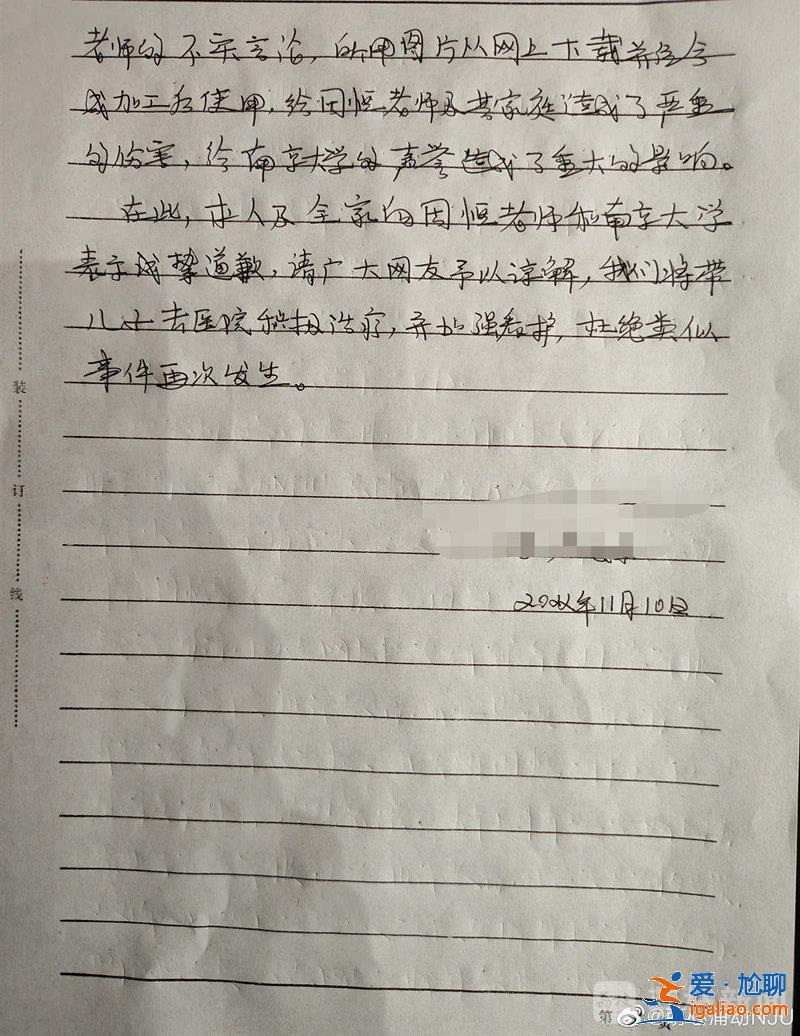 老师的不实言论，所用图片从网上下载并经合
成加工后使用，给田恒老师及其家庭造成了严重
的伤害，给南京大学的声誉造成了重大的影响。
在此，本人及全家向田恒老师和南京大学
表示诚挚道歉，请广大网友予以谅解，我们将带
儿子去医院积极治疗，并加强看护，杜绝类似
事件再次发生。
装
订
线
年11月10日
第
页
NJU
爱·尬聊
www.igaliao.com